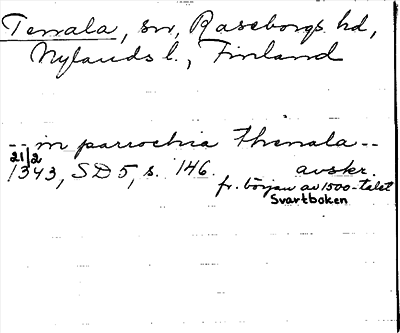 Tenala, sn, Raseborgs hd,
Nylands l., Finland
-- in parrochia Thenala --
21/2
1343, SD 5, s. 146. avskr.
fr. början av 1500-talet
Svartboken